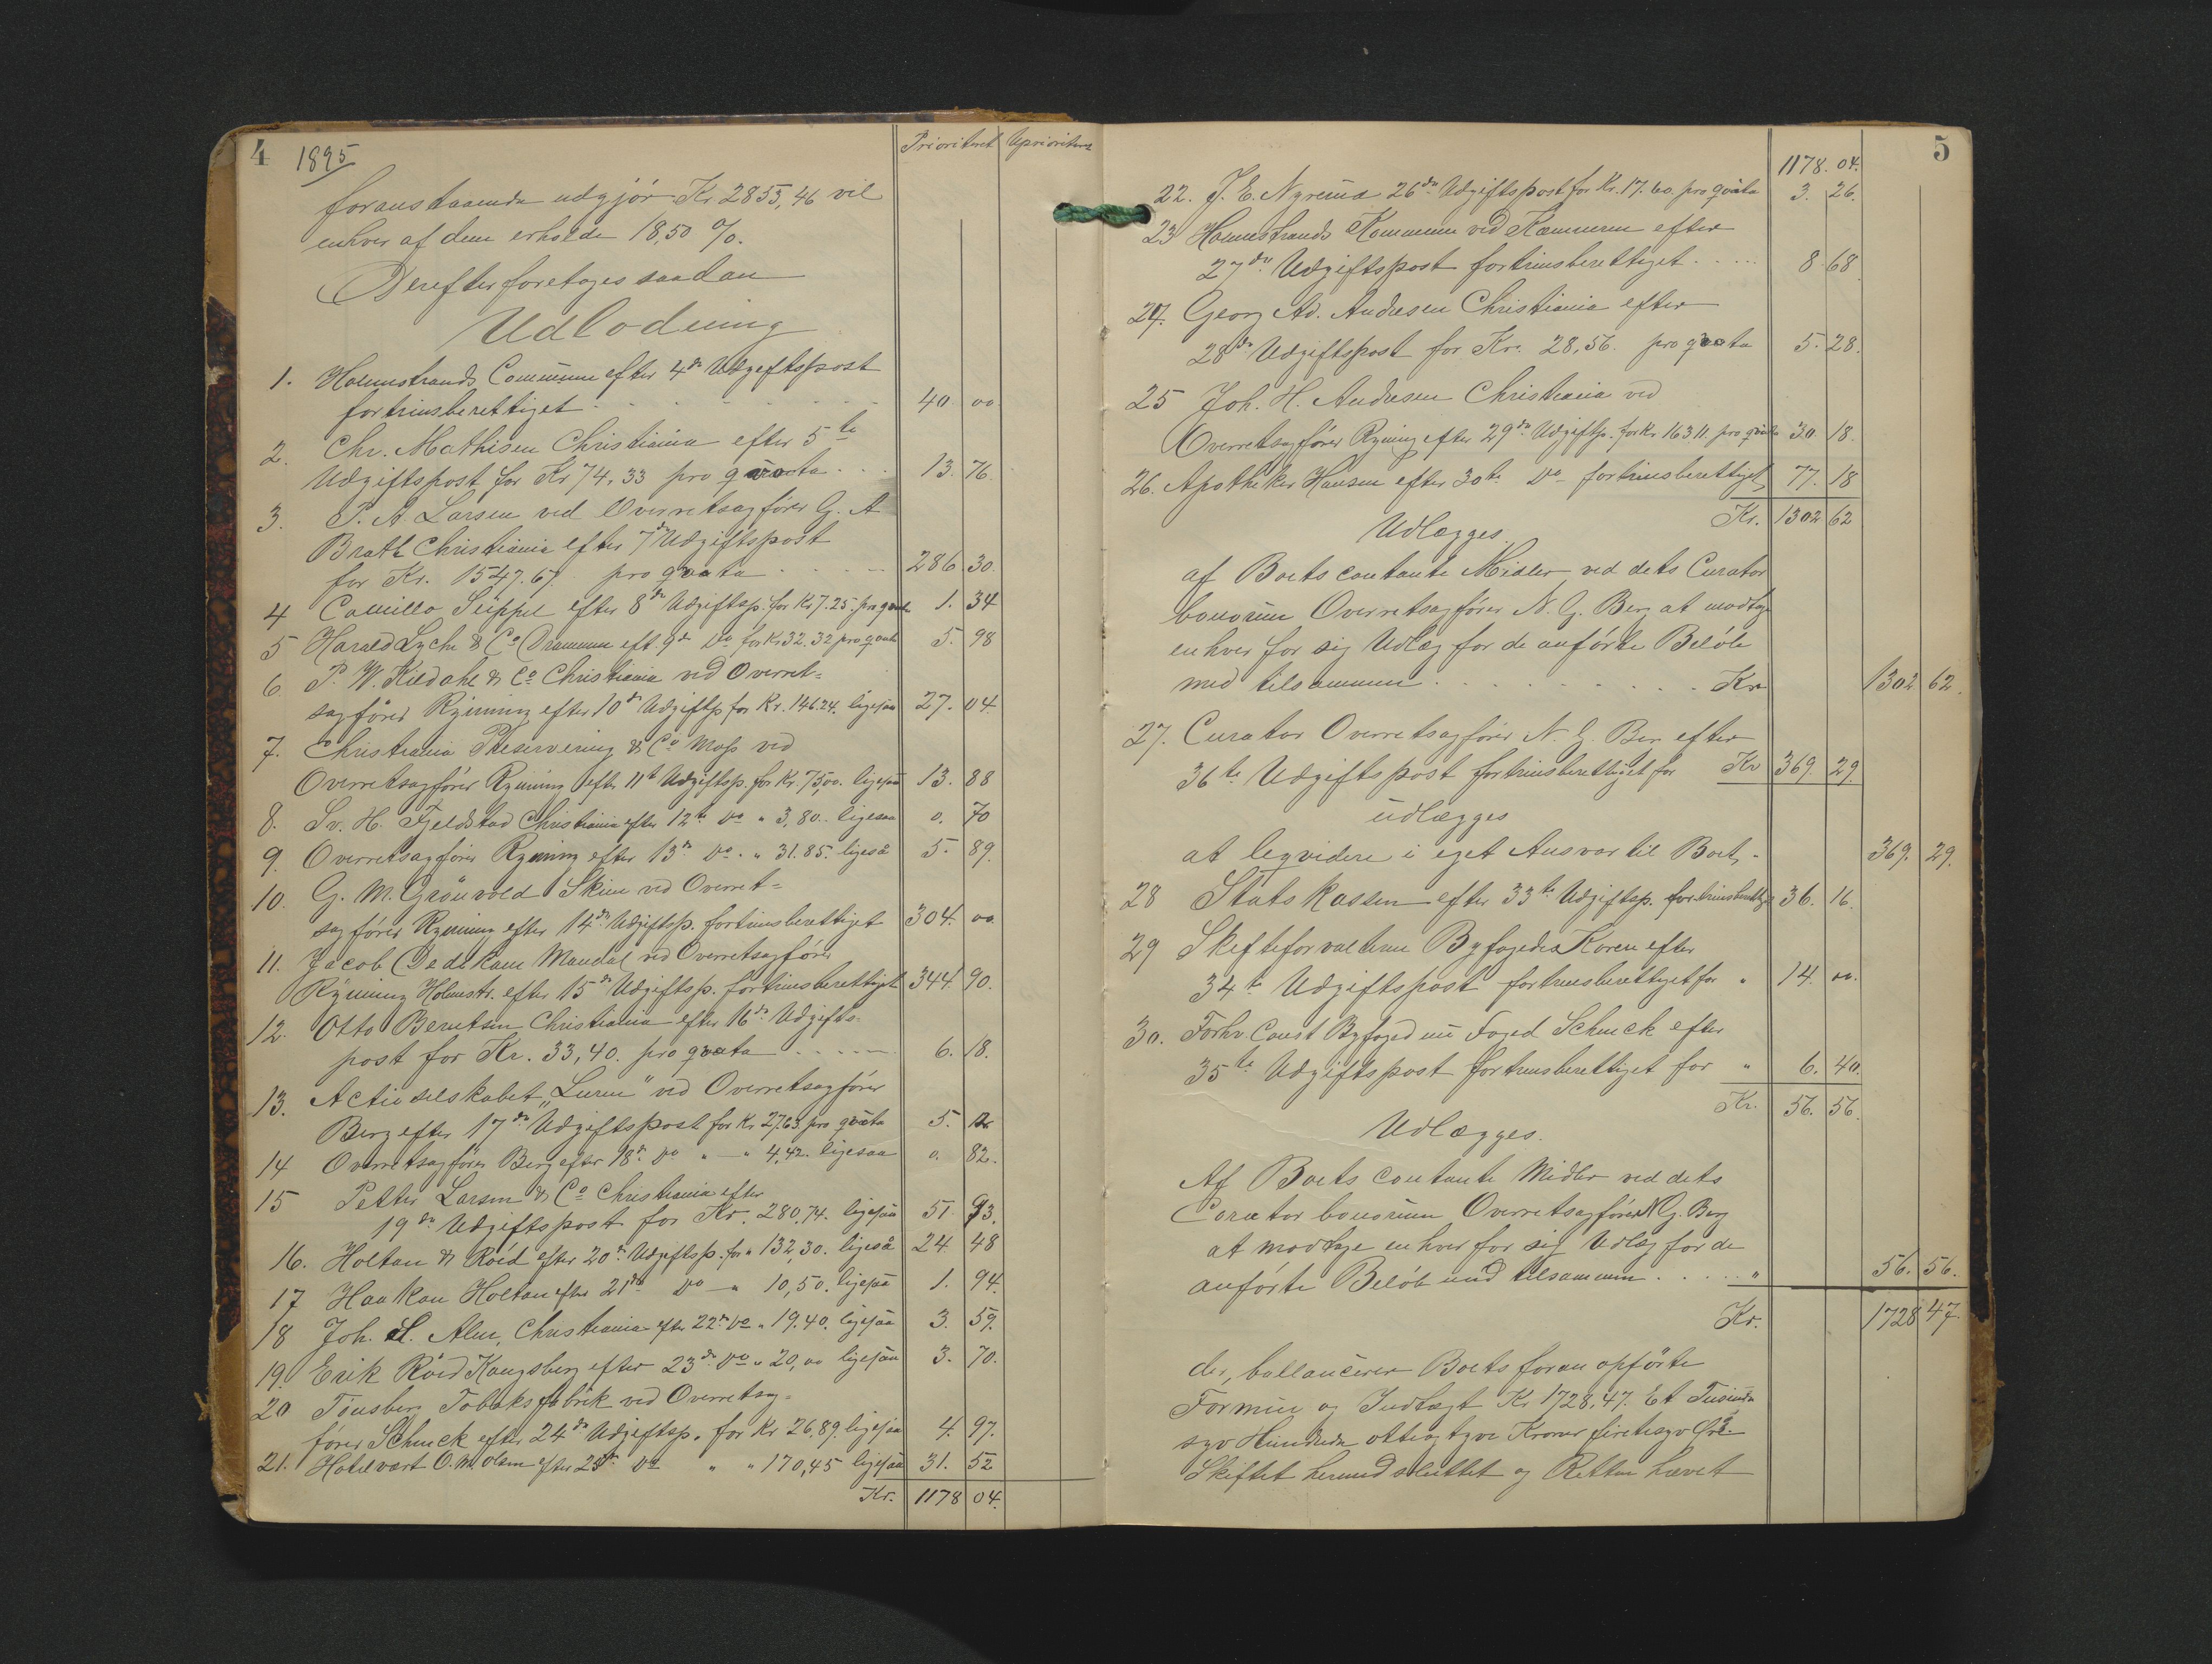 4 1895 Prioriteret Uprioriteret
foranstaaende udgjør Kr 2855,46 vil
enhver af dem erholde 18,50 %.
Derefter foretoges saadan
Udlodning
1. Holmestrands Commune efter 4de Udgiftspost
fortrinsberettiget 40. 00
2. Chr. Mathisen Christiania efter 5te
Udgiftspost for Kr 74,33 pro qvota 13. 76.
3. P. A. Larsen ved Overretsagfører G. A
Brath Christiania efter 7de Udgiftspost
for Kr. 1547.67. pro qvota 286 30.
4 Camillo Süppel efter 8de Udgiftsp. for Kr 7.25. pro qvota 1. 34
5 Harald Lyche & Co Drammen eft. 9de Do for Kr 32.32 pro qvota 5. 98
6 P. W. Kildahl & Co Christiania ved Overret=
sagfører Rynning efter 10de Udgiftsp for Kr. 146.24. ligesaa 27. 04.
7. Christiania Preserving & Co Moss ved
Overretsagfører Rynning efter 11te Udgiftsp. for Kr. 75,00. ligesaa 13. 88
8. Sv. H. Fjeldstad Christiania efter 12te Do " 3,80. ligesaa 0. 70
9. Overretsagfører Rynning efter 13de Do. " 31.85. ligeså 5. 89.
10. G. M. Grönvold Skien ved Overret=
sagfører Rynning efter 14de Udgiftsp. fortrinsberettiget 304. 00
11. Jacob Dedekam Mandal ved Overretsagfører
Rynning Holmestr. efter 15de Udgiftsp. fortrinsberettiget 344. 90.
12. Otto Berntsen Christiania efter 16de Udgifts-
post for Kr. 33,40. pro qvota 6. 18.
13. Actieselskabet "Luren" ved Overretsagfører
Berg efter 17de Udgiftspost for Kr 27.63. pro qvota 5. 12
14 Overretsagfører Berg efter 18de Do " - " 4,42. ligesaa 0. 82.
15 Petter Larsen & Co Christiania efter
19de Udgiftspost for Kr. 280,74. ligesaa 51. 93.
16. Holtan & Röed efter 20de Udgiftsp. for " 132,30. ligeså 24. 48
17 Haakon Holtan efter 21de Do - " 10,50. ligesaa 1. 94.
18 Joh. S. Alm, Christiania efter 22de Do " 19.40. ligesaa 3. 59.
19. Erik Röed Kongsberg efter 23de Do " 20,00 ligesaa 3. 70.
20 Tönsberg Tobaksfabrik ved Overretsag=
fører Schmeck efter 24de Udgiftsp. for Kr 26,89. ligesaa 4. 97.
21. Hotelvært O. M. Olsen efter 25de Do " " 170,45 ligesaa 31. 52
Kr. 1178 04.
5
1178. 04.
22. J. E. 26de Udgiftspost for Kr. 17.60. pro qvota 3. 26.
23 Holmestrands Kommune ved Kæmneren efter
27de Udgiftspost fortrinsberettiget 8. 68
24. Georg Ad. Andresen Christiania efter
28de Udgiftspost for Kr. 28,56. pro qvota 5. 28.
25 Joh. H. Andresen Christiania ved
Overretsagfører Rynning efter 29de Udgiftsp. for Kr 163 11. pro qvota 30. 18.
26. Apotheker Hansen efter 30te Do fortrinsberettiget 77. 18
Kr. 1302 62
Udlægges.
af Boets contante Midler ved dets Curator
bonorum Overretsagfører N. G. Berg at modtage
enhver for sig Udlæg for de anførte Beløb
med tilsammen Kr 1302 62.
27. Curator Overretsagfører N. G. Berg efter
36te Udgiftspost fortrinsberettiget for Kr 369. 29.
udlægges
at leqvidere i eget Ansvar til Boet, - 369. 29.
28 Statskassen efter 33te Udgiftsp. fortrinsberettiget 36. 16.
29 Skifteforvalteren Byfoged Koren efter
34te Udgiftspost fortrinsberettiget for " 14. 00.
30. Forhv. Const Byfoged nu Foged Schmeck efter
35te Udgiftspost fortrinsberettiget for " 6. 40.
Kr. 56. 56.
Udlægges.
Af Boets contante Midler ved dets
Curator bonorum Overretsagfører N G. Berg
at modtage enhver for sig Udlæg for de
anførte Beløb med tilsammen " 56. 56.
Kr. 1728 47.
der, ballancerer Boets foran opførte
Formue og Indtægt Kr 1728,47. Et Tusinde
syv Hundrede otteogtyve Kroner firetisyv Øre.
Skiftet hermed sluttet og Retten hævet